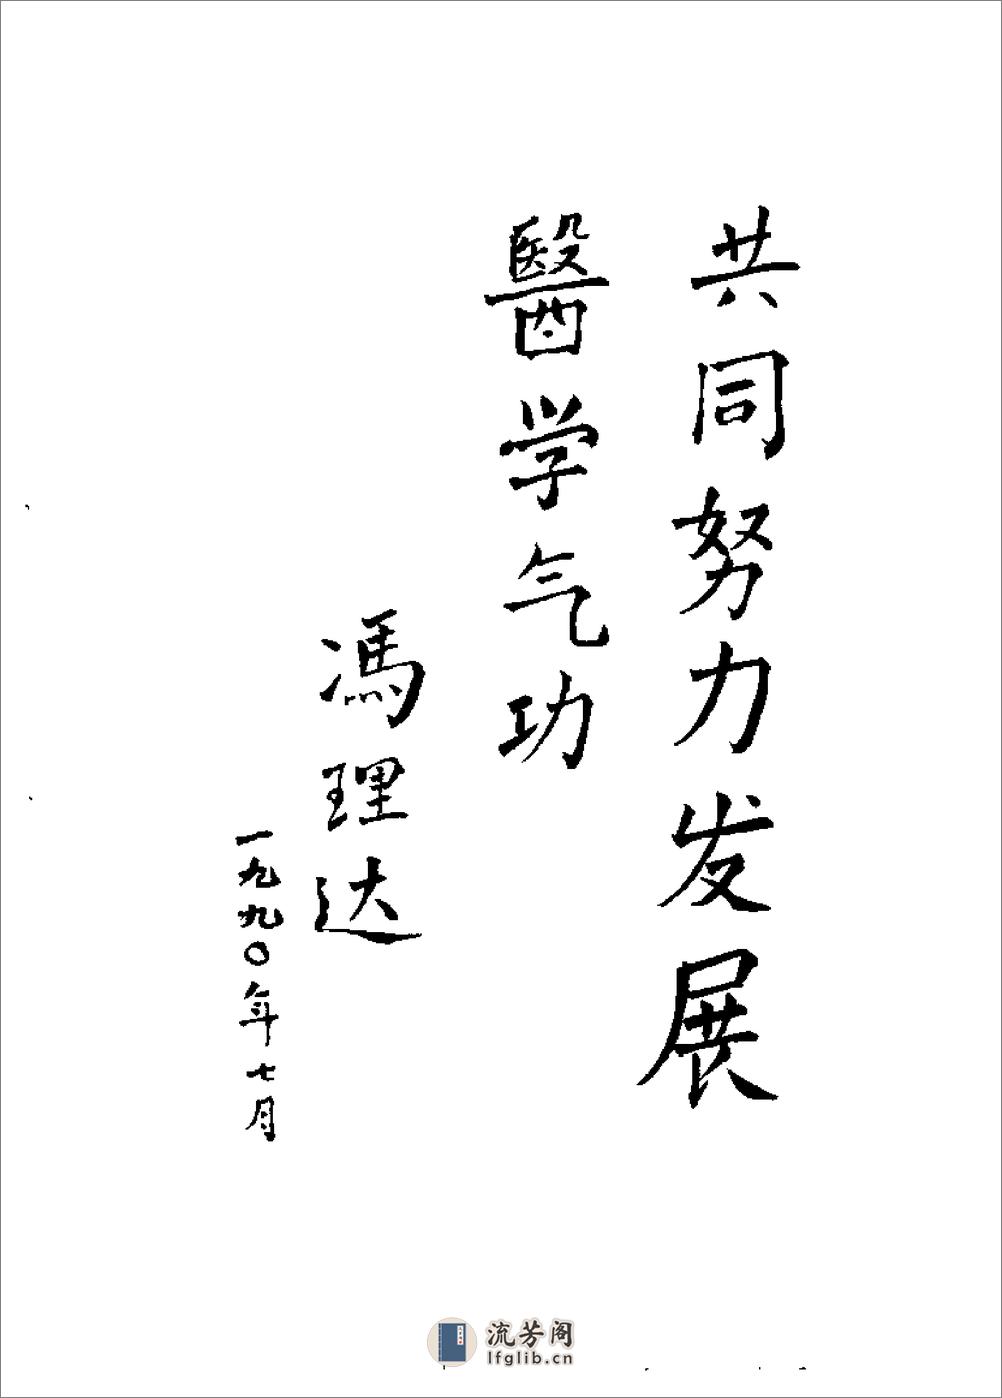 共同努力发展
醫学气功
馮理达
一九九〇年七月
流芳阁
lfglib.cn